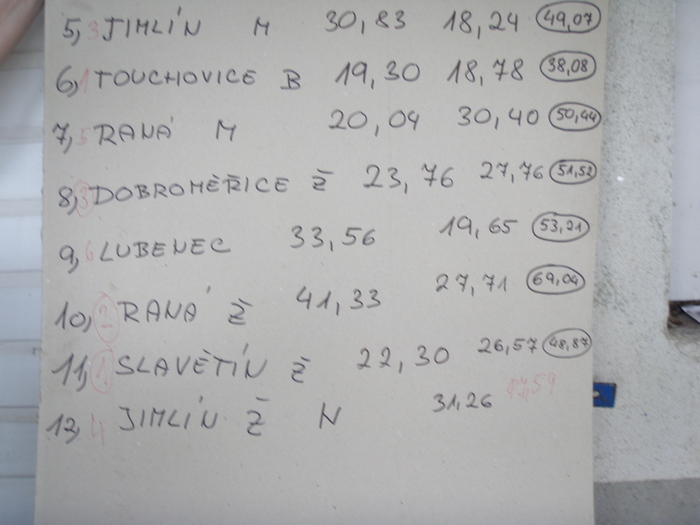 5, 3 JIMLÍN M 30,83 18,24 49,07
6, 1 TOUCHOVICE B 19,30 18,78 38,08
7, 5 RANÁ M 20,04 30,40 50,44
8, 3 DOBROMĚŘICE Ž 23,76 27,76 51,52
9, 6 LUBENEC 33,56 19,65 53,21
10, 2 RANÁ Ž 41,33 27,71 69,04
11, 1, SLAVĚTÍN Ž 22,30 26,57 48,87
12, 4 JIMLÍN Ž N 31,26